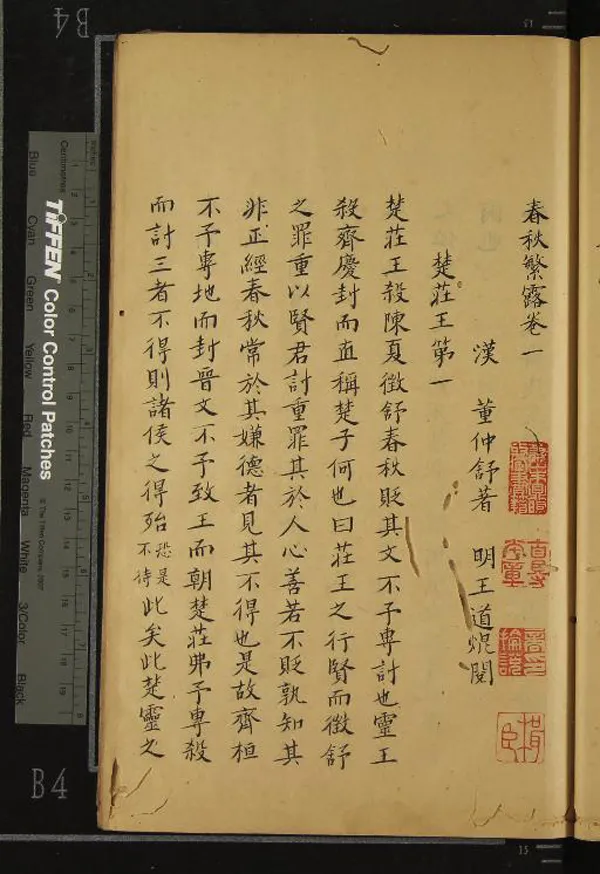 春秋繁露卷一
漢 董仲舒著 明王道焜閱
楚莊王第一
楚莊王殺陳夏徵舒春秋貶其文不予專討也靈王
殺齊慶封而直稱楚子何也曰莊王之行賢而徵舒
之罪重以賢君討重罪其於人心善若不貶孰知其
非正經春秋常於其嫌德者見其不得也是故齊桓
不予專地而封晉文不予致王而朝楚莊弗予專殺
而討三者不得則諸侯之得殆恐是不待此矣此楚靈之
TIFFEN Color Control Patches
© The Tiffen Company, 2007
Centimetres
Inches
Blue
Cyan
Green
Yellow
Red
Magenta
White
3/Color
Black
B4
B4
15
15